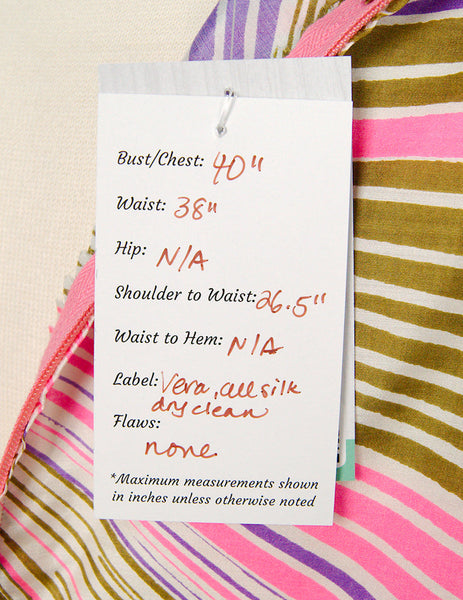 Bust/Chest: 40"
Waist: 38"
Hip: N/A
Shoulder to Waist: 26.5"
Waist to Hem: N/A
Label: Vera, all silk
dry clean
Flaws:
none
*Maximum measurements shown
in inches unless otherwise noted